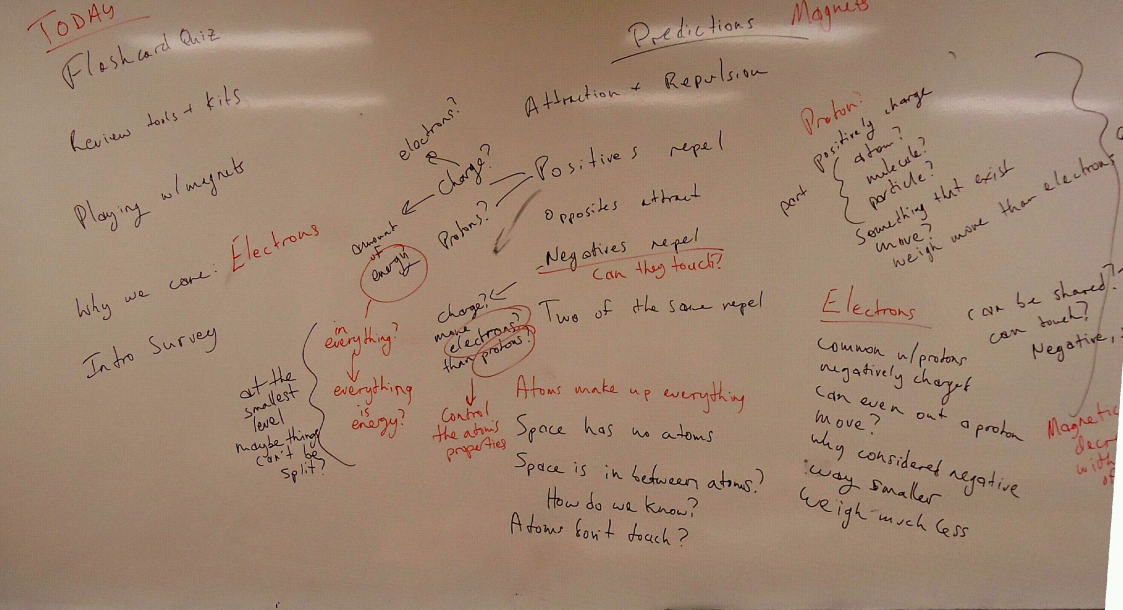 TODAY
Flashcard Quiz
Review tools + kits
Playing w/magnets
Why we care: Electrons
Intro Survey
Predictions
Magnets
Attraction + Repulsion
Positives repel
Charge?
electrons?
amount
of
energy
Protons?
Opposites attract
Negatives repel
Can they touch?
charge?
more
electrons?
than protons?
Two of the same repel
in
everything?
everything
is
energy?
at the
smallest
level
maybe things
can't be
split?
Control
the atom's
properties
Atoms make up everything
Space has no atoms
Space is in between atoms?
How do we know?
Atoms don't touch?
Proton?
positively charge
part
atom?
molecule?
particle?
Something that exist
move?
weigh more than electrons
Electrons
can be shared?
can touch?
Negative,
Common w/protons
negatively charged
can even out a proton
move?
why considered negative
way smaller
weigh much less
Magnetic
decr
with
of